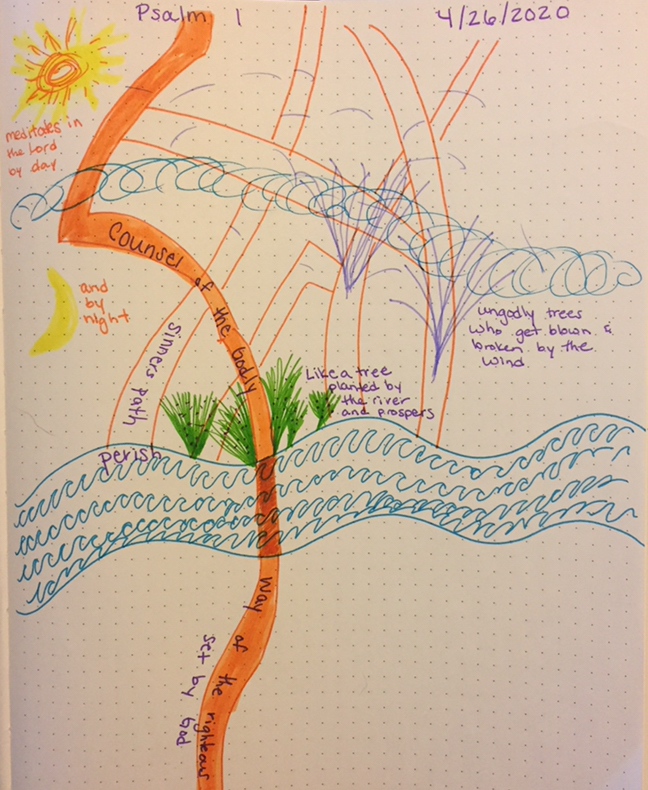 Psalm 1
4/26/2020
meditates in
the Lord
by day
and
by
night
Counsel of the Godly
sinners path
perish
Like a tree
planted by
the river
and prospers
ungodly trees
who get blown &
broken by the
wind.
Way of the righteous
set by God